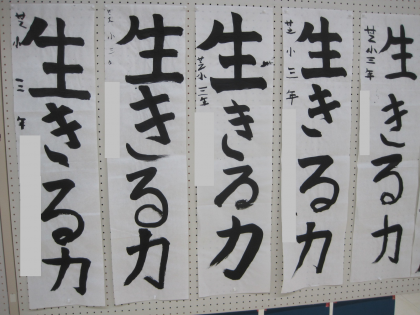 生きる力
芝小三年
生きる力
芝小三年
生きる力
芝小三年
生きる力
小三
生きる力
芝小三年